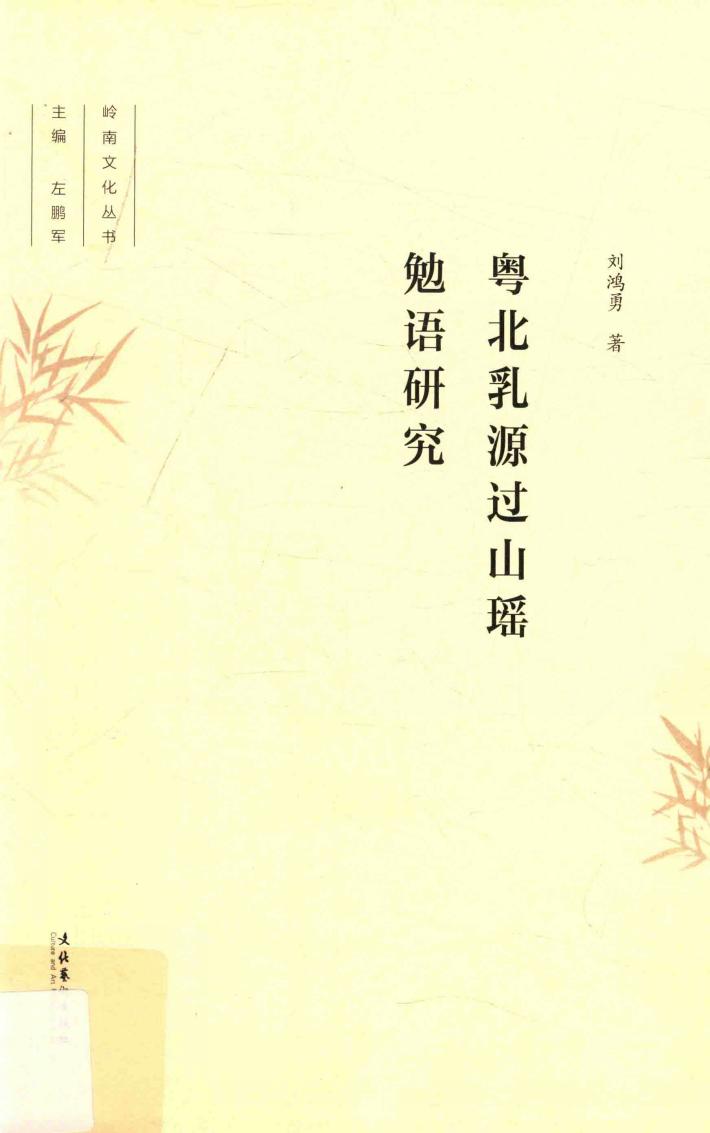 刘鸿勇 著
粤北乳源过山瑶
勉语研究
岭南文化丛书
主编 左鹏军
文化艺
Culture and Art